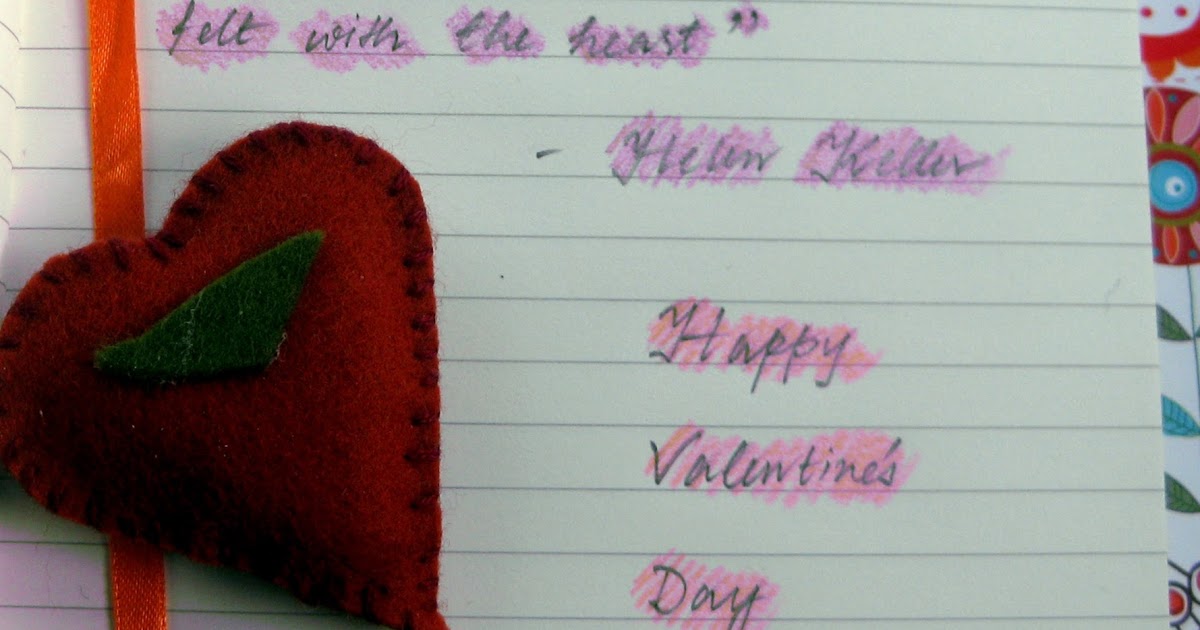 felt with the heart”
- Helen Keller
Happy
Valentine's
Day